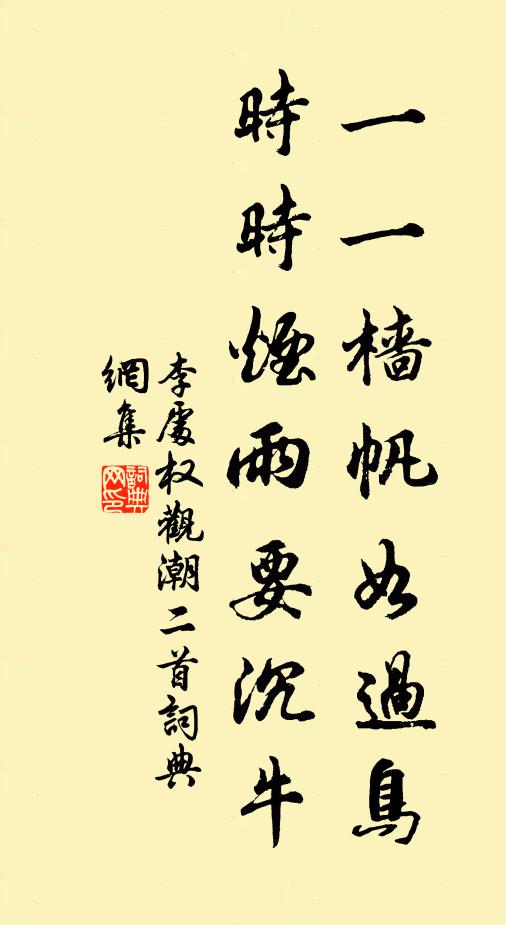 一一檣帆如過鳥
時時煙雨要沉牛
李處权觀潮二首詞典
網集
詞典網印